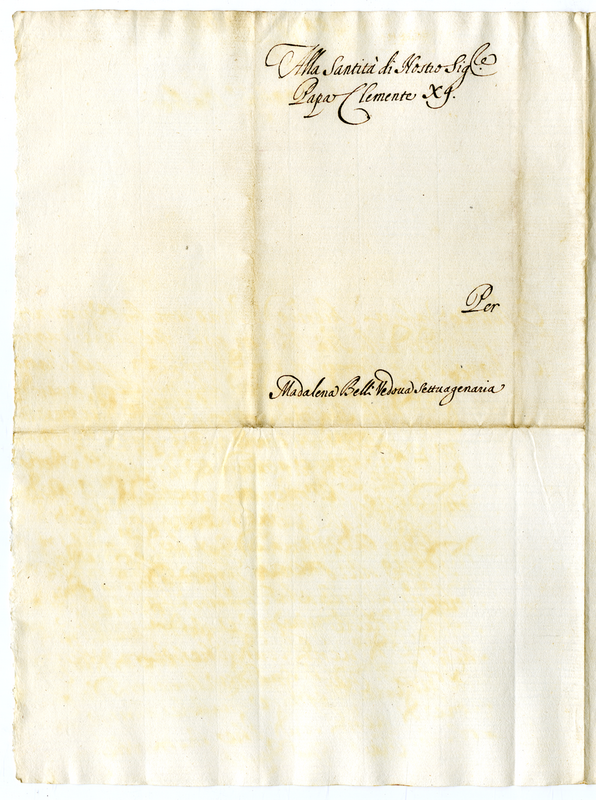 Alla Santità di Nostro Sig.re
Papa Clemente X9.
Per
Madalena Belli Vedova Settuagenaria